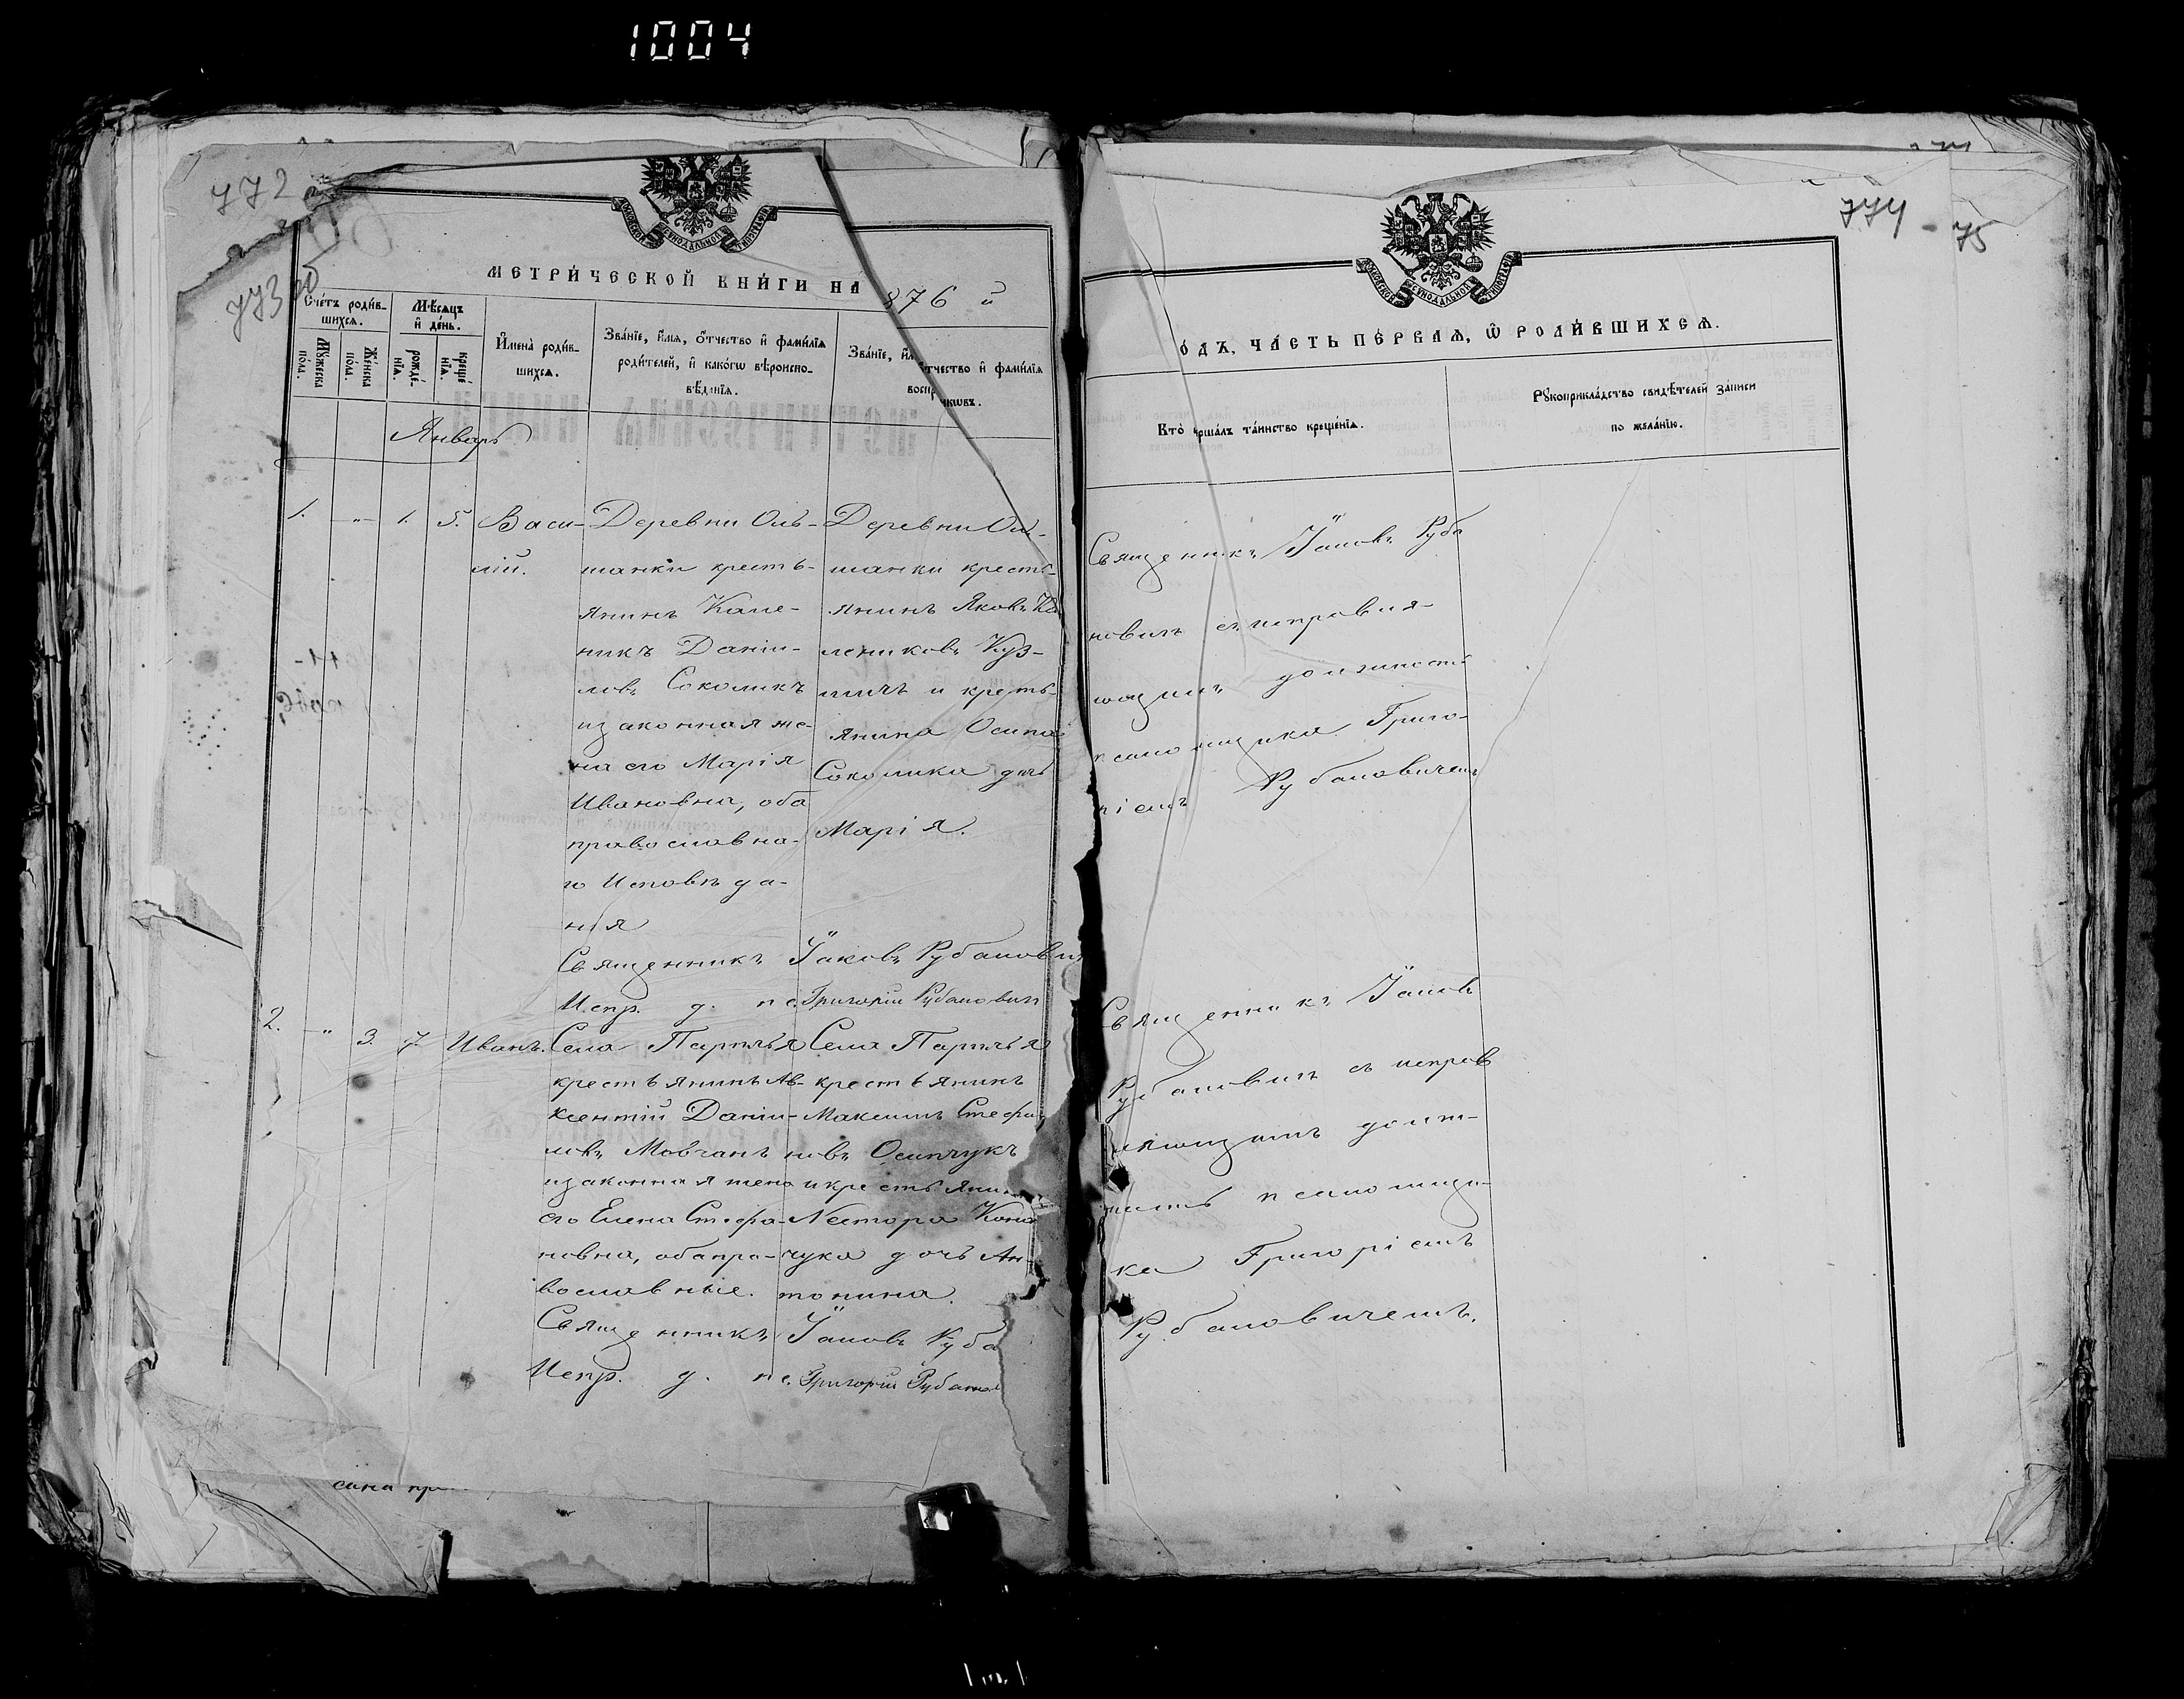 1004
772
773
774
75
МЕТРИЧЕСКОЙ КНИГИ НА
876 й
Счетъ родив-
шихся.
Мѣсяцъ
и день.
Мужеска
пола.
Женска
пола.
рожде-
нія.
креще
нія.
Имена родив-
шихся.
Званіе, имя, отчество и фамилія
родителей, и какогѡ вѣроиспо-
вѣданія.
Званіе, им
отчество и фамилія
воспр
никовъ.
Январь
1. -"- 1. 5. Васи-
лій.
Деревни Оль-
шанки кресть-
янинъ Кали-
никъ Даніи-
ловъ Соколикъ
и законная же-
на его Марія
Ивановна, оба
православна-
го Исповѣда-
нія
Деревни Оль-
шанки кресть-
янинъ Яковъ Ка
лениковъ Куз-
мичъ и кресть-
янина Осипа
Соколика дочь
Марія.
Священникъ Іаковъ Рубановичъ
Испр. д. пс. Григорій Рубановичъ
2. -"- 3. 7. Иванъ.
Села
крестьянинъ Ав-
ксентій Даніи-
ловъ Мовчанъ
и законная жена
его Елена Стефа-
новна, оба пра-
вославные.
Села
крестьянинъ
Максимъ Стефа
новъ Осипчукъ
и крестьяни
Нестора Кона
чука дочь Ан-
тонина.
Священникъ Іаковъ Руба
Испр. д. пс. Григорій Рубанов
сина пр
ОДЪ, ЧАСТЬ ПЕРВАЯ, Ѡ РОДИВШИХСЯ.
Кто
ершалъ таинство крещенія.
Рукоприкладство свидѣтелей записи
по желанію.
Священникъ Іаковъ Руба
новичъ съ исправля-
ющимъ должность
псаломщика Григо-
ріемъ Рубановичемъ
Священникъ Іаковъ
Рубановичъ съ исправ
ляющимъ долж-
ность псаломщи-
ка Григоріемъ
Рубановичемъ.